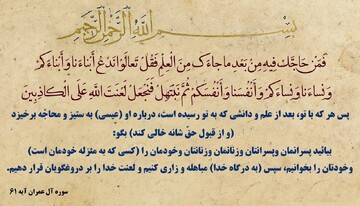 بِسْمِ اللهِ الرَّحْمٰنِ الرَّحِيمِ
فَمَنْ حَاجَّكَ فِيهِ مِنْ بَعْدِ مَا جَاءَكَ مِنَ الْعِلْمِ فَقُلْ تَعَالَوْا نَدْعُ أَبْنَاءَنَا وَأَبْنَاءَكُمْ
وَنِسَاءَنَا وَنِسَاءَكُمْ وَأَنْفُسَنَا وَأَنْفُسَكُمْ ثُمَّ نَبْتَهِلْ فَنَجْعَلْ لَعْنَتَ اللهِ عَلَى الْكَاذِبِينَ
پس هر که با تو، بعد از علم و دانشی که به تو رسیده است، درباره او (عیسی) به ستیز و محاجّه برخیزد
(و از قبول حقّ شانه خالی کند) بگو:
بیائید پسرانمان وپسرانتان وزنانمان وزنانتان وخودمان را (کسی که به منزله خودمان است)
وخودتان را بخوانیم، سپس (به درگاه خدا) مباهله و زاری کنیم و لعنت خدا را بر دروغگویان قرار دهیم.
سوره آل عمران آیه ۶۱